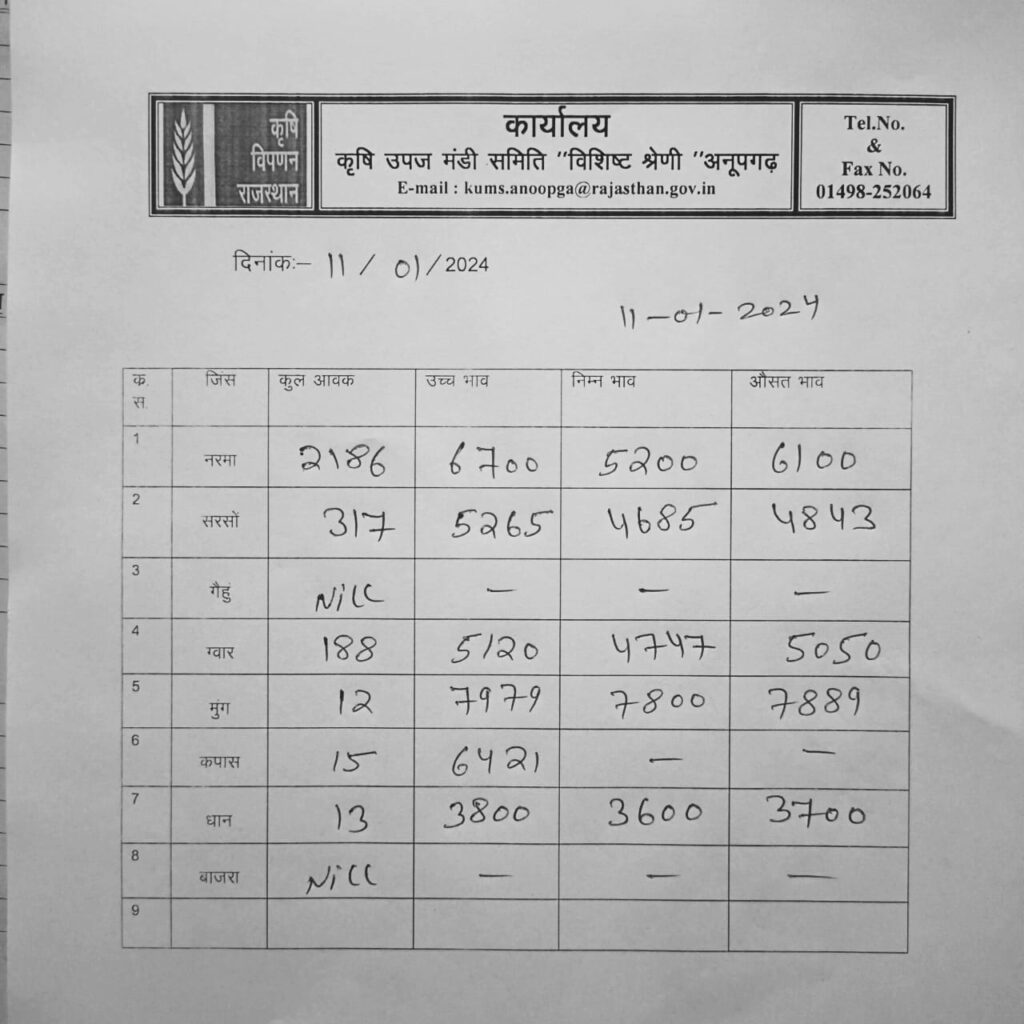 कृषि
विपणन
राजस्थान
कार्यालय
कृषि उपज मंडी समिति "विशिष्ट श्रेणी "अनूपगढ़
E-mail : kums.anoopga@rajasthan.gov.in
Tel.No.
&
Fax No.
01498-252064
दिनांकः– 11 / 01/2024
11-01-2024
क. स. जिंस कुल आवक उच्च भाव निम्न भाव औसत भाव
1 नरमा 2186 6700 5200 6100
2 सरसों 317 5265 4685 4843
3 गैहुं Nill — — —
4 ग्वार 188 5120 4747 5050
5 मुंग 12 7979 7800 7889
6 कपास 15 6421 — —
7 धान 13 3800 3600 3700
8 बाजरा Nill — — —
9